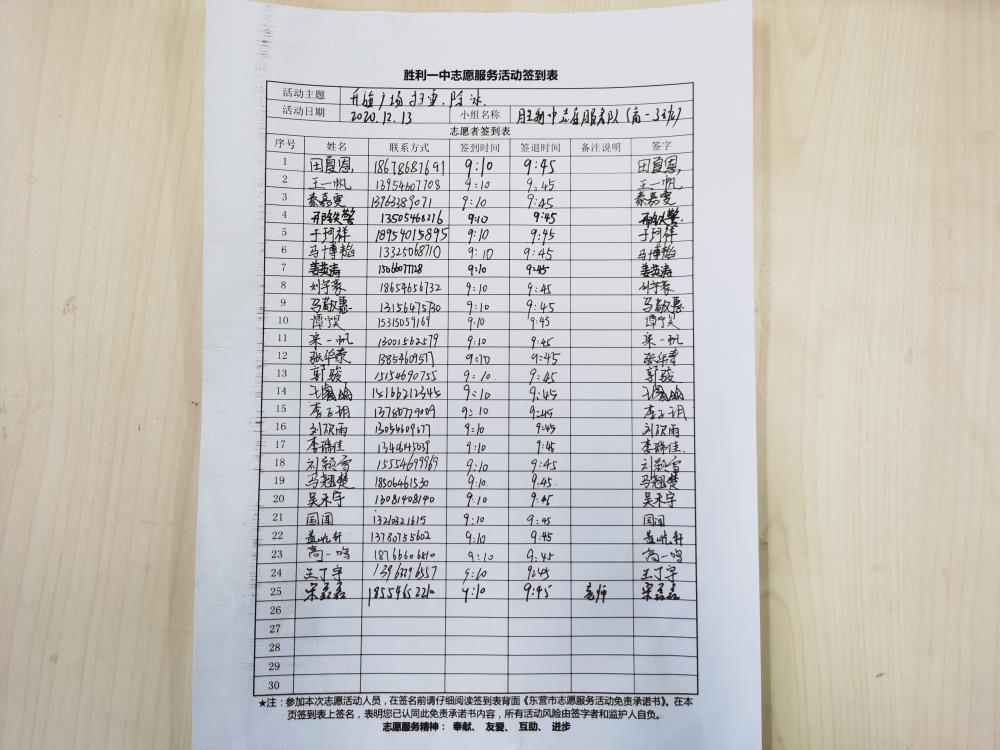 胜利一中志愿服务活动签到表
活动主题 广场扫雪、除冰
活动日期 2020.12.13 小组名称 胜利一中志愿服务队(高一3班)
志愿者签到表
序号 姓名 联系方式 签到时间 签退时间 备注说明 签字
1 田夏恩 18678687691 9:10 9:45 田夏恩
2 王一帆 13954607708 9:10 9:45 王一帆
3 秦嘉雯 13763389071 9:10 9:45 秦嘉雯
4 13505466216 9:10 9:45
5 于珂祥 18954015895 9:10 9:45 于珂祥
6 马博焰 13325068710 9:10 9:45 马博焰
7 姜英涛 15066077128 9:10 9:45 姜英涛
8 刘宇豪 18654656732 9:10 9:45 刘宇豪
9 马敬惠 13156475730 9:10 9:45 马敬惠
10 谭宁昊 15315059169 9:10 9:45 谭宁昊
11 宋一帆 13001562579 9:10 9:45 宋一帆
12 张华泰 13854609577 9:10 9:45 张华泰
13 郭骏 15154690755 9:10 9:45 郭骏
14 15166212345 9:10 9:45
15 李子玥 13780779009 9:10 9:45 李子玥
16 刘欣雨 13054609677 9:10 9:45 刘欣雨
17 李瑞佳 9:10 9:45 李瑞佳
18 刘颖雪 15554699969 9:10 9:45 刘颖雪
19 马翘楚 18506461530 9:10 9:45 马翘楚
20 吴禾宇 13081408140 9:10 9:45 吴禾宇
21 国闻 13210321615 9:10 9:45 国闻
22 13780755602 9:10 9:45
23 高一鸣 18766606810 9:10 9:45 高一鸣
24 王丁宇 13963296557 9:10 9:45 王丁宇
25 宋磊磊 18554652210 9:10 9:45 老师 宋磊磊
26
27
28
29
30
★注:参加本次志愿活动人员,在签名前请仔细阅读签到表背面《东营市志愿服务活动免责承诺书》。在本
页签到表上签名,表明您已认同此免责承诺书内容,所有活动风险由签字者和监护人自负。
志愿服务精神: 奉献、 友爱、 互助、 进步